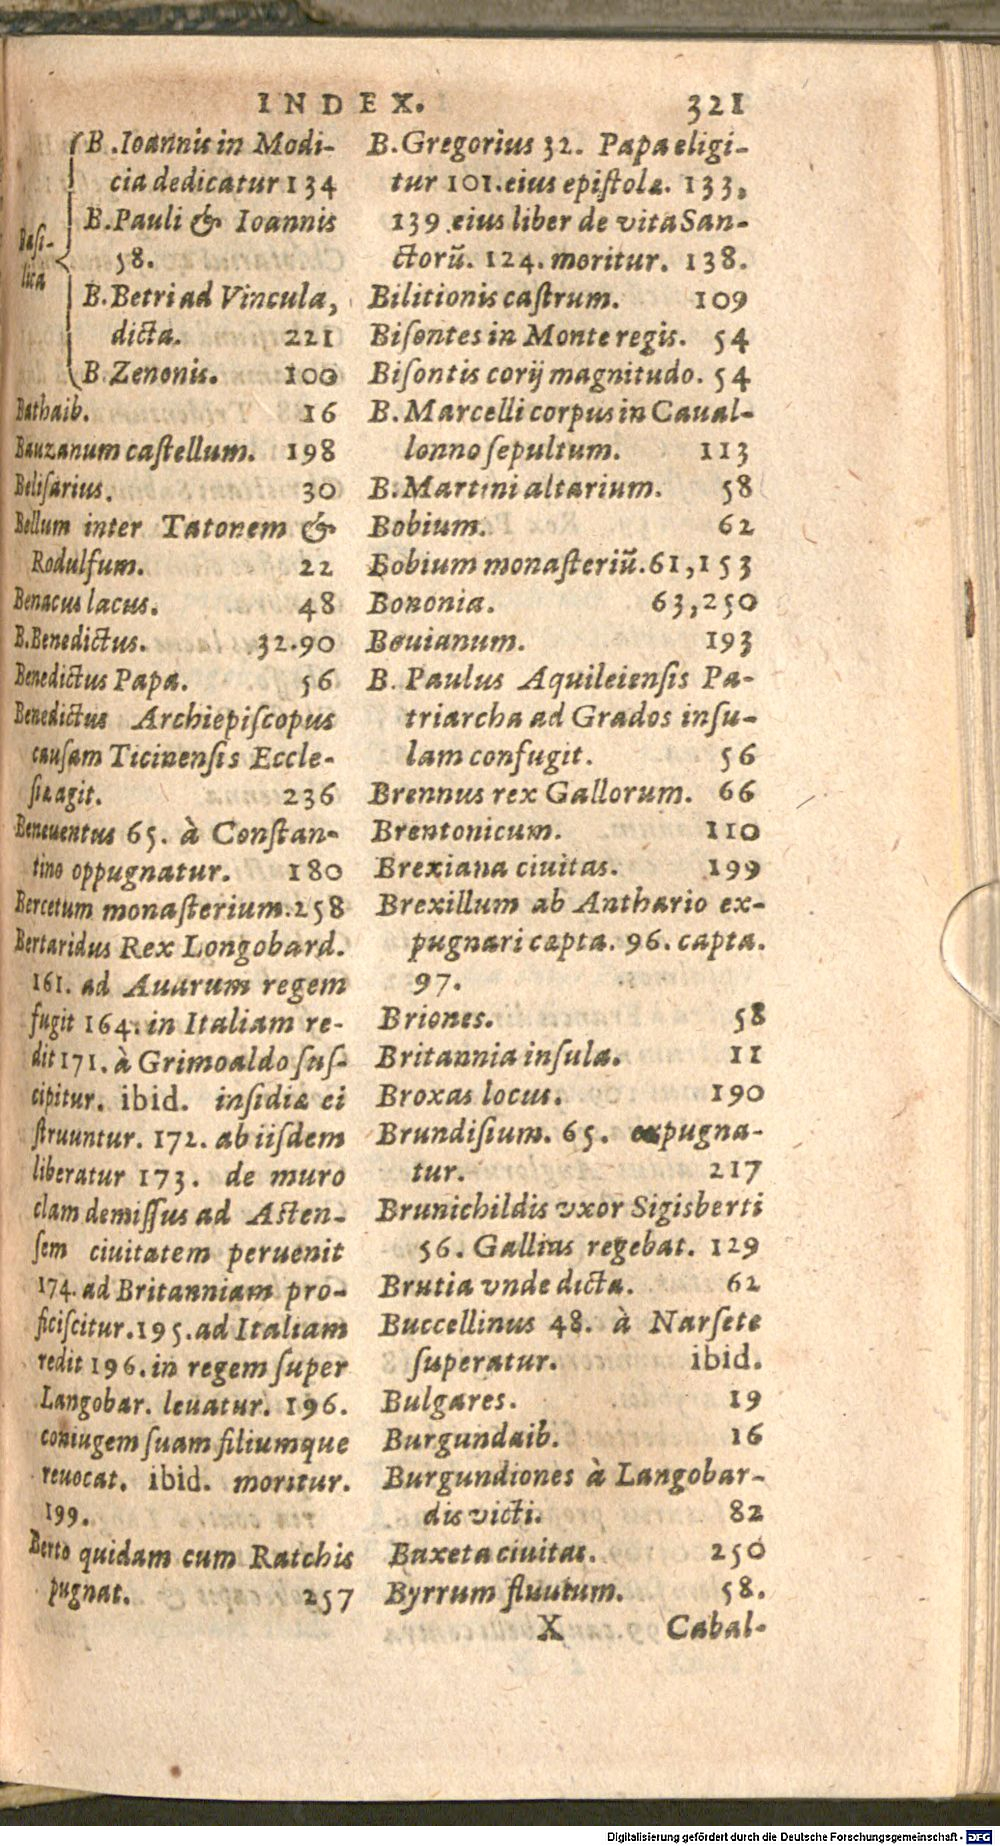 INDEX. 321
Basi-
lica
B. Ioannis in Modi-
cia dedicatur 134
B. Pauli & Ioannis
58.
B. Betri ad Vincula,
dicta. 221
B Zenonis. 100
Bathaib. 16
Bauzanum castellum. 198
Belisarius. 30
Bellum inter Tatonem &
Rodulfum. 22
Benacus lacus. 48
B. Benedictus. 32.90
Benedictus Papa. 56
Benedictus Archiepiscopus
causam Ticinensis Eccle-
siæ agit. 236
Beneuentus 65. à Constan-
tino oppugnatur. 180
Bercetum monasterium. 258
Bertaridus Rex Longobard.
161. ad Auarum regem
fugit 164. in Italiam re-
dit 171. à Grimoaldo sus-
cipitur. ibid. insidiæ ei
struuntur. 172. ab iisdem
liberatur 173. de muro
clam demissus ad Asten-
sem ciuitatem peruenit
174. ad Britanniam pro-
ficiscitur. 195. ad Italiam
redit 196. in regem super
Langobar. leuatur. 196.
coniugem suam filiumque
reuocat. ibid. moritur.
199.
Berto quidam cum Ratchis
pugnat. 257
B. Gregorius 32. Papa eligi-
tur 101. eius epistolæ. 133,
139. eius liber de vita San-
ctorũ. 124. moritur. 138.
Bilitionis castrum. 109
Bisontes in Monte regis. 54
Bisontis corij magnitudo. 54
B. Marcelli corpus in Caual-
lonno sepultum. 113
B. Martini altarium. 58
Bobium. 62
Bobium monasteriũ. 61, 153
Bononia. 63, 250
Bouianum. 193
B. Paulus Aquileiensis Pa-
triarcha ad Grados insu-
lam confugit. 56
Brennus rex Gallorum. 66
Brentonicum. 110
Brexiana ciuitas. 199
Brexillum ab Anthario ex-
pugnari capta. 96. capta.
97.
Briones. 58
Britannia insula. 11
Broxas locus. 190
Brundisium. 65. expugna-
tur. 217
Brunichildis vxor Sigisberti
56. Gallias regebat. 129
Brutia vnde dicta. 62
Buccellinus 48. à Narsete
superatur. ibid.
Bulgares. 19
Burgundaib. 16
Burgundiones à Langobar-
dis victi. 82
Buxeta ciuitas. 250
Byrrum fluuium. 58.
X Cabal-
Digitalisierung gefördert durch die Deutsche Forschungsgemeinschaft - DFG